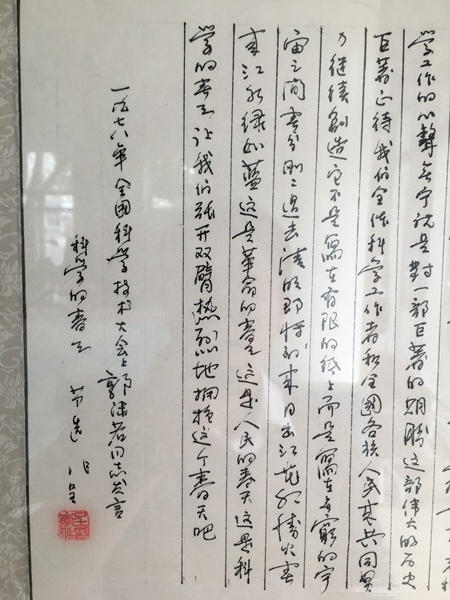 学工作的心聲无宁说是對一部巨著的期盼这部伟大的历史
巨著正待我们全体科学工作者和全國各族人民来共同努
力继续創造它不是寫在有限的纸上而是寫在无窮的宇
宙之间春分刚々过去清明即将到来日出江花红勝火春
来江水绿如蓝这是革命的春天这是人民的春天这是科
学的春天让我们张开双臂热烈地拥抱这个春天吧
一九七八年全國科学技术大会上郭沫若同志发言
科学的春天 节选